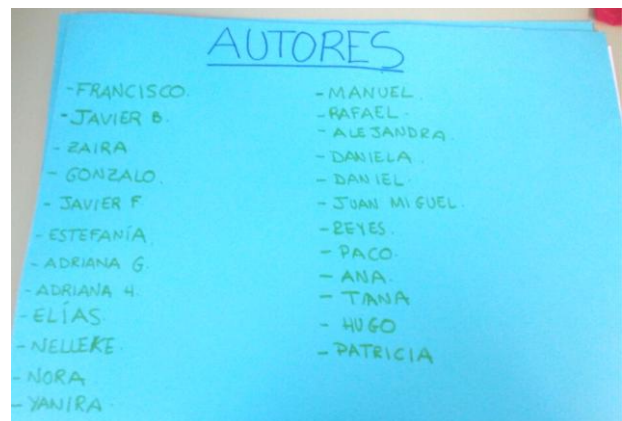 AUTORES
-FRANCISCO.
-JAVIER B.
-ZAIRA
-GONZALO.
-JAVIER F.
-ESTEFANÍA.
-ADRIANA G.
-ADRIANA H.
-ELÍAS.
-NELLEKE.
-NORA
-YANIRA
-MANUEL.
-RAFAEL.
-ALEJANDRA.
-DANIELA.
-DANIEL.
-JUAN MIGUEL.
-REYES.
-PACO.
-ANA.
-TIANA
-HUGO
-PATRICIA